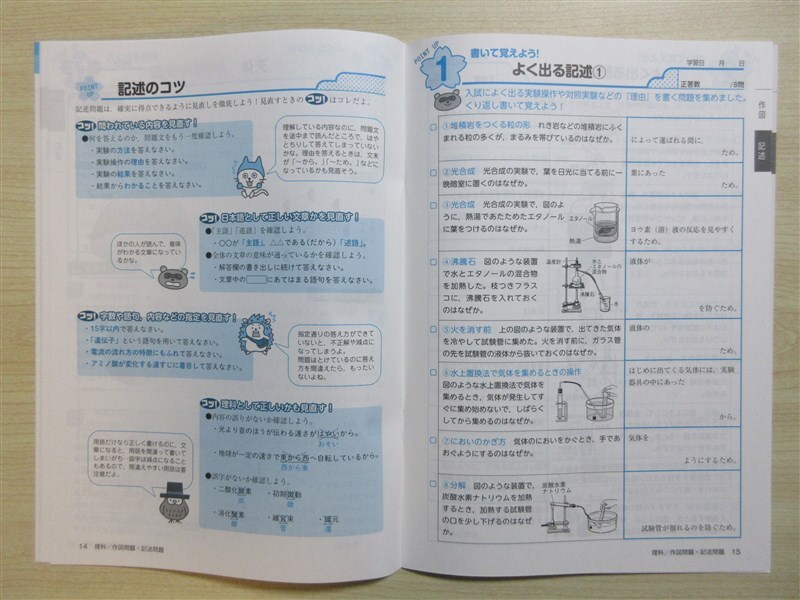 POINT UP
記述のコツ
記述問題は、確実に得点できるように見直しを徹底しよう！見直すときのコツ！はコレだよ。
コツ！問われている内容を見直す！
●何を答えるのか、問題文をもう一度確認しよう。
・実験の方法を答えなさい。
・実験操作の理由を答えなさい。
・実験の結果を答えなさい。
・結果からわかることを答えなさい。
理解している内容なのに、問題文
を途中まで読んだところで、はや
とちりして答えてしまっていない
かな。理由を答えるときは、文末
が「～から。」「～ため。」などに
なっているかも見直そう。
コツ！日本語として正しい文章かを見直す！
●「主語」「述語」を確認しよう。
・〇〇が「主語」、△△である(だから)「述語」。
●全体の文章の意味が通っているかを確認しよう。
・解答欄の書き出しに続けて答えなさい。
・文章中の□にあてはまる語句を答えなさい。
ほかの人が読んで、意味
がわかる文章になってい
るかな。
コツ！字数や語句、内容などの指定を見直す！
・15字以内で答えなさい。
・「遺伝子」という語句を用いて答えなさい。
・電流の流れ方の特徴にもふれて答えなさい。
・アミノ酸が変化する道すじに着目して答えなさい。
指定通りの答え方ができて
いないと、不正解や減点に
なってしまうよ。
問題はとけているのに答え
方を間違えたら、もったい
ないよね。
コツ！理科として正しいかも見直す！
●内容の誤りがないか確認しよう。
・光より音のほうが伝わる速さがはやいから。
おそい
・地球が一定の速さで東から西へ自転しているから。
西から東
●誤字がないか確認しよう。
・二酸化酸素
・初期微動
・消化酸素
・維官束
管
・還元
用語だけなら正しく書けるのに、文
章になると、用語を間違って書いて
しまいがち…誤字は減点になること
もあるので、間違えやすい用語は要
注意だよ。
14 理科／作図問題・記述問題
POINT UP
1
書いて覚えよう！
よく出る記述①
学習日 月 日
正答数 /8問
入試によく出る実験操作や対照実験などの「理由」を書く問題を集めました。
くり返し書いて覚えよう！
①堆積岩をつくる粒の形 れき岩などの堆積岩にふく
まれる粒の多くが、まるみを帯びているのはなぜか。
によって運ばれる間に、
ため。
②光合成 光合成の実験で、葉を日光に当てる前に一
晩暗室に置くのはなぜか。
葉にあった
ため。
③光合成 光合成の実験で、図のよ
うに、熱湯であたためたエタノール
に葉をつけるのはなぜか。
エタノール
熱湯
ヨウ素（液）液の反応を見やすく
するため。
④沸騰石 図のような装置
で水とエタノールの混合物
を加熱した。枝つきフラス
コに、沸騰石を入れておく
のはなぜか。
温度計
水と
エタノールの
混合物
沸騰石
水
液体が
を防ぐため。
⑤火を消す前 上の図のような装置で、出てきた気体
を冷やして試験管に集めた。火を消す前に、ガラス管
の先を試験管の液体から抜いておくのはなぜか。
液体の
ため。
⑥水上置換法で気体を集めるときの操作
図のような水上置換法で気体を
集めるとき、気体が発生してす
ぐに集め始めないで、しばらく
してから集めるのはなぜか。
はじめに出てくる気体には、実験
器具の中にあった
から。
⑦においのかぎ方 気体のにおいをかぐとき、手であ
おぐようにするのはなぜか。
気体を
ようにするため。
⑧分解 図のような装置で、
炭酸水素ナトリウムを加熱
するとき、加熱する試験管
の口を少し下げるのはなぜ
か。
炭酸水素
ナトリウム
試験管が割れるのを防ぐため。
作図
記述
理科／作図問題・記述問題 15